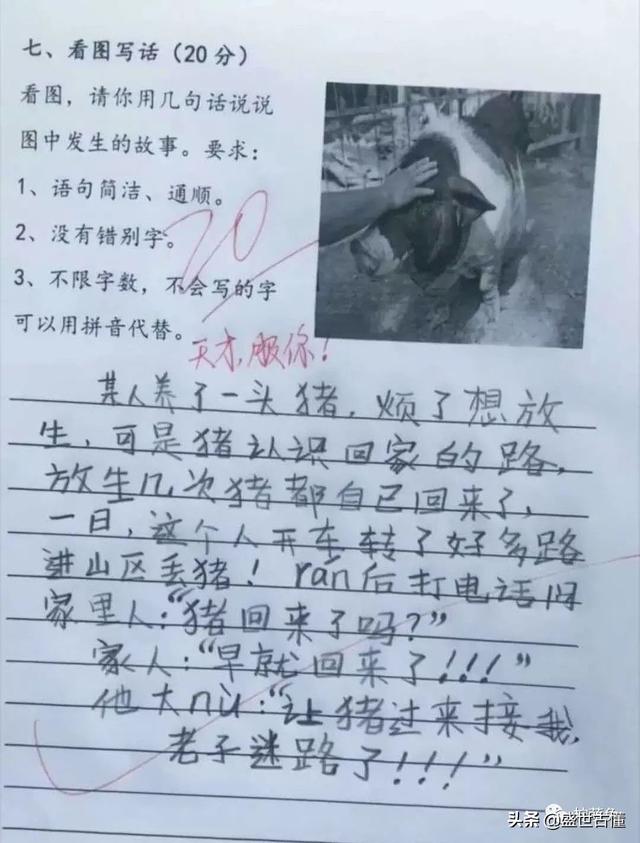 七、看图写话（20分）
看图，请你用几句话说说
图中发生的故事。要求：
1、语句简洁、通顺。
2、没有错别字。
3、不限字数，不会写的字
可以用拼音代替。
20
天才,服你！
某人养了一头猪，烦了想放
生，可是猪认识回家的路，
放生几次猪都自己回来了，
一日，这个人开车转了好多路
进山区丢猪！rán后打电话问
家里人:“猪回来了吗？”
家人:“早就回来了!!!”
他大nù:“让猪过来接我,
老子迷路了!!!”
头条 @盛世古懂